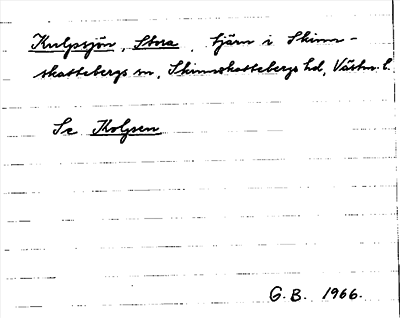 Kulpsjön, Stora, tjärn i Skinn-
skattebergs sn, Skinnskattebergs hd, Västm. l.
Se Kolpsen
G. B. 1966.